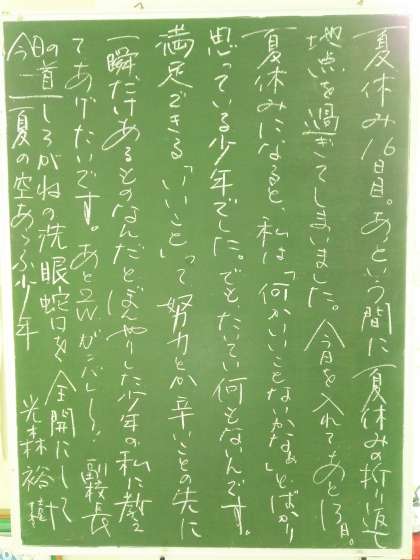 夏休み16日目。あという間に夏休みの折り返し
地点を過ぎてしまいました。今日を入れてあと13日。
夏休みになると、私は「何かいいことないかなぁ」とばかり
思っている少年でした。でも、たいてい何もないんです。
満足できる「いいこと」って努力とか辛いことの先に
一瞬だけあるものなんだとぼんやりした少年の私に教え
てあげたいです。あと2Wガンバレ〜! 副校長
今日の一首 しろがねの洗眼蛇口を全開にして
夏の空あらふ少年 光森裕樹